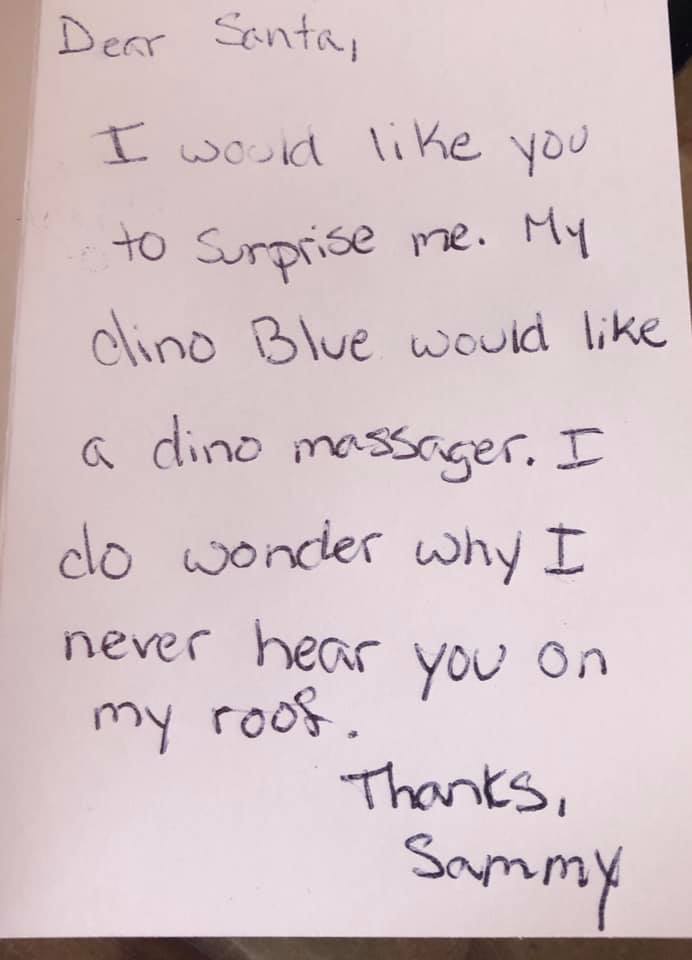 Dear Santa,
I would like you
to surprise me. My
dino Blue would like
a dino massager. I
do wonder why I
never hear you on
my roof.
Thanks,
Sammy